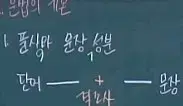 . 문법의 기본
1. 품사와 문장 성분
단어 — + — 문장
격조사